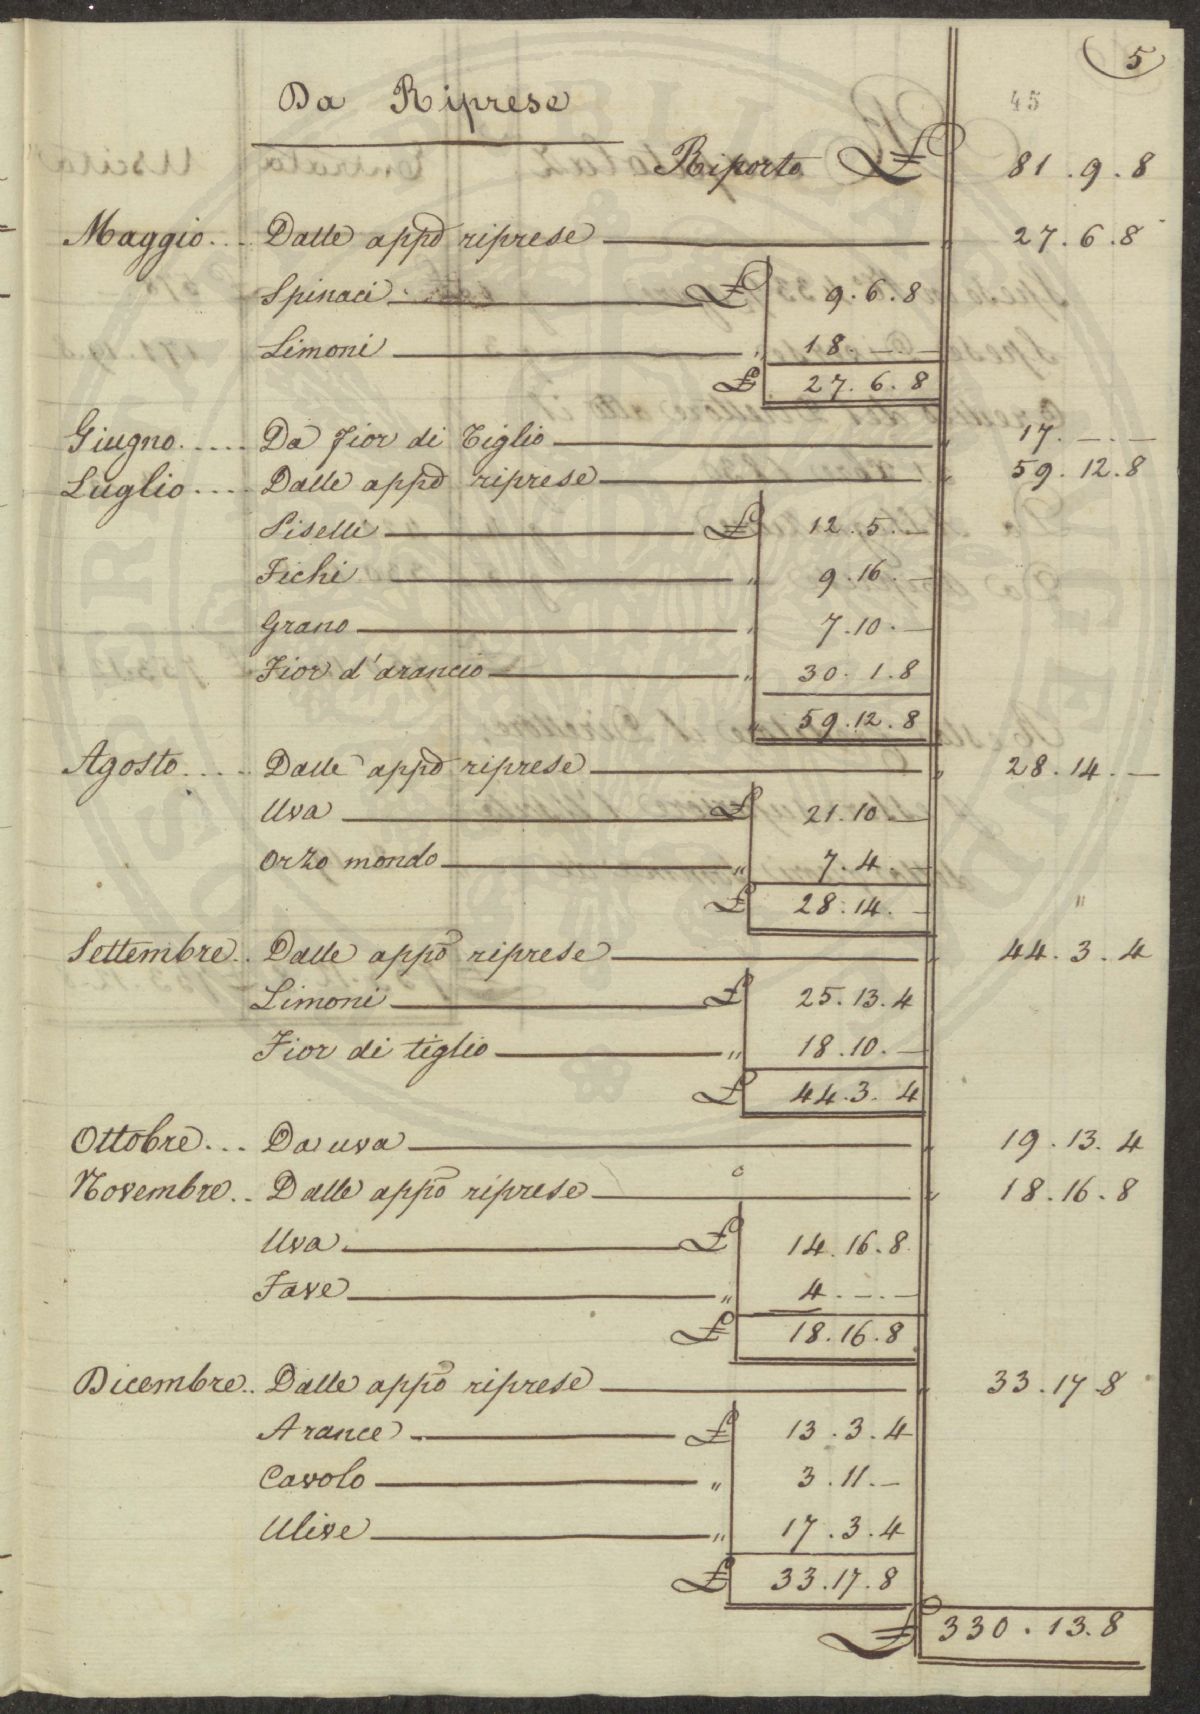 5
45
Da Riprese
Riporto £ 81.9.8
Maggio... Dalle appo riprese " 27.6.8
Spinaci £ 9.6.8
Limoni " 18.—.—
£ 27.6.8
Giugno..... Da fior di Tiglio " 17.—.—
Luglio.... Dalle appo riprese " 59.12.8
Piselli £ 12.5.—
Fichi " 9.16.—
Grano " 7.10.—
Fior d'arancio " 30.1.8
" 59.12.8
Agosto.... Dalle appo riprese " 28.14.—
Uva £ 21.10.—
Orzo mondo " 7.4.—
£ 28.14.—
Settembre.. Dalle appo riprese " 44.3.4
Limoni £ 25.13.4
Fior di tiglio " 18.10.—
£ 44.3.4
Ottobre... Da uva " 19.13.4
Novembre.. Dalle appo riprese " 18.16.8
Uva £ 14.16.8
Fave " 4.—.—
£ 18.16.8
Dicembre.. Dalle appo riprese " 33.17.8
Arance £ 13.3.4
Cavolo " 3.11.—
Ulive " 17.3.4
£ 33.17.8
£ 330.13.8